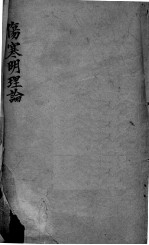 傷寒明理論